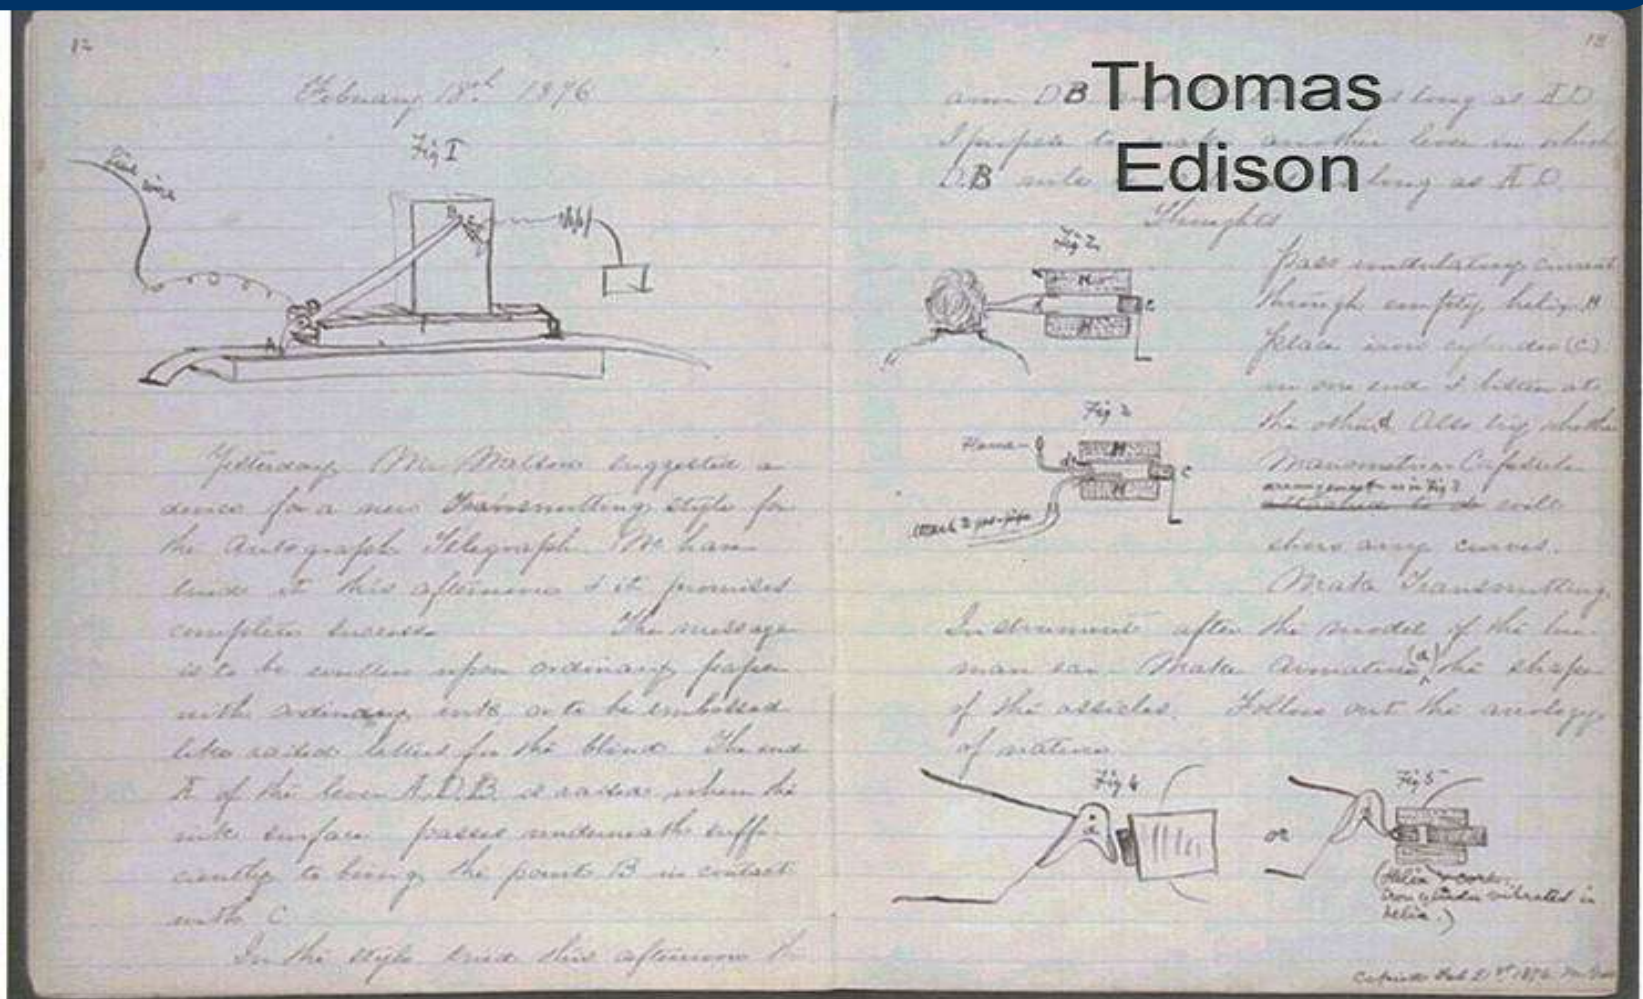 12
February 18th 1876
Fig I
Line wire
B
C
D
A
Yesterday Mr Watson suggested a
device for a new Transmitting style for
the Autograph Telegraph. We have
tried it this afternoon & it promises
complete success. The message
is to be written upon ordinary paper
with ordinary ink or to be embossed
like raised letters for the blind. The end
A of the lever A.D.B. is raised when the
ink surface passes underneath suffi-
ciently to bring the point B in contact
with C.
In the style tried this afternoon the
13
Thomas
Edison
arm DB long as A.D
I propose to make another lever in which
D.B will long as A.D.
Thoughts
Fig 2
H
C
H
Pass undulating current
through empty helix H
Place iron cylinder (C)
in one end & listen at
the other. Also try whether
Manometric Capsule
arrangement as in Fig 3
will
show any curves.
Fig 3
Flame
H
C
H
attach to gas-pipe
Make Transmitting
Instrument after the model of the hu-
man ear. Make Armature (a) the shape
of the ossicles. Follow out the analogy
of nature.
Fig 4
a
or
Fig 5
a
(Helix &
iron cylinder vibrated in
helix.)
Copied Feb 21st 1876